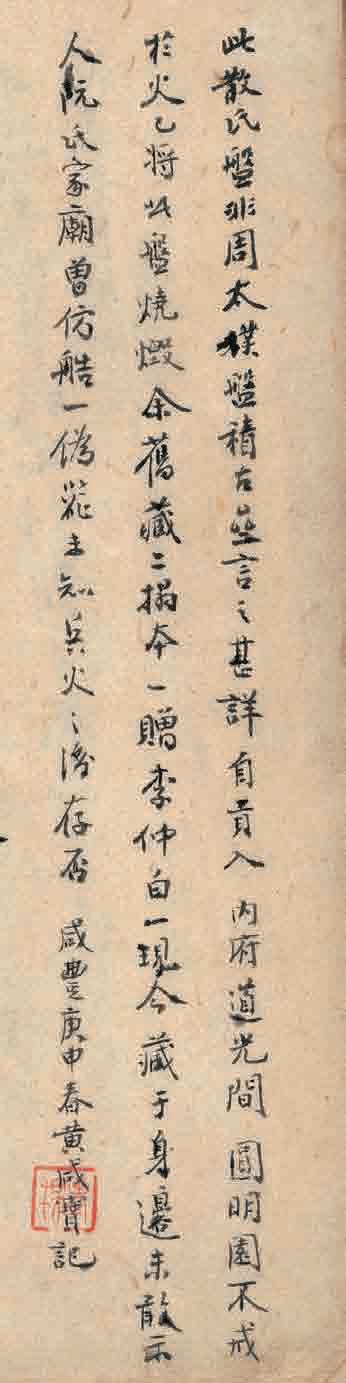 此散氏盤非周太僕盤積古齋言之甚詳自貢入內府道光間圓明園不戒
於火已將此盤燒燬余舊藏二搨本一贈李仲白一現今藏于身邊未敢示
人阮氏家廟曾仿鑄一偽器未知兵火之後存否 咸豐庚申春黃咸寶記